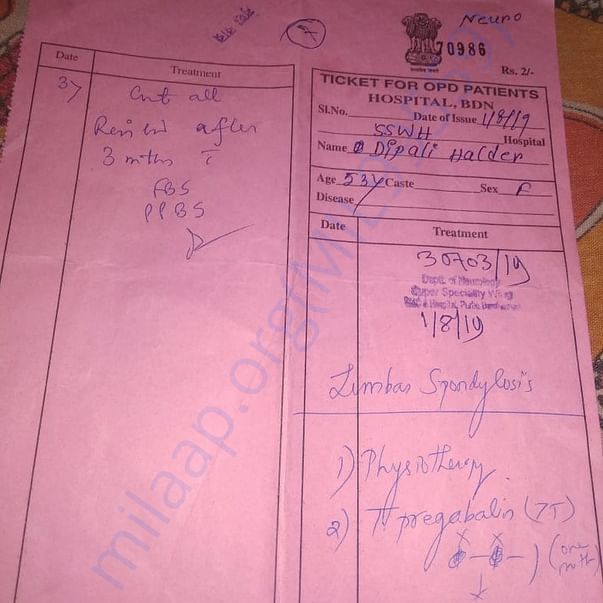 Date
Treatment
3)
Cnt all
Review after
3 mths c̄
FBS
PPBS
7
Neuro
70986
Rs. 2/-
TICKET FOR OPD PATIENTS
HOSPITAL, BDN
Sl.No.
Date of Issue 1/8/19
SSWH Hospital
Name Dipali Halder
Age 53Y Caste
Sex F
Disease
Date
Treatment
30703/19
Deptt. of Neurology
Super Speciality Wing
& Hospital, Purba Bardhaman
1/8/19
Lumbar Spondylosis
1) Physiotherapy
2) T pregabalin (75)
(one mnth)
milaap.org